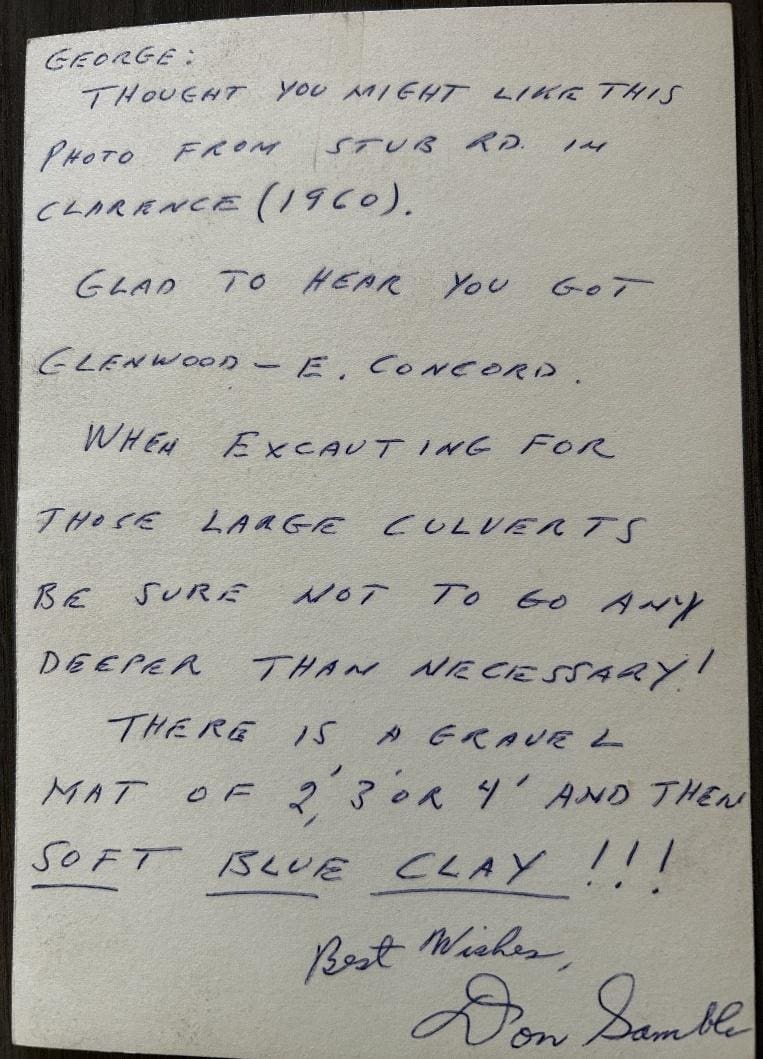 GEORGE:
THOUGHT YOU MIGHT LIKE THIS
PHOTO FROM STUB RD. IN
CLARENCE (1960).
GLAD TO HEAR YOU GOT
GLENWOOD – E. CONCORD.
WHEN EXCAUTING FOR
THOSE LARGE CULVERTS
BE SURE NOT TO GO ANY
DEEPER THAN NECESSARY!
THERE IS A GRAVEL
MAT OF 2', 3' OR 4' AND THEN
SOFT BLUE CLAY !!!
Best Wishes,
Don